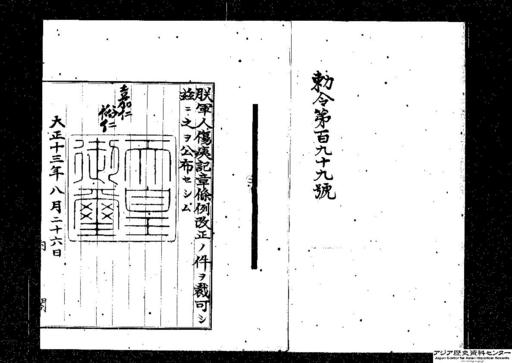 勅令第百九十九號
朕軍人傷痍記章條例改正ノ件ヲ裁可シ
茲ニ之ヲ公布セシム
嘉仁
裕仁
天皇
御璽
大正十三年八月二十六日
内閣
アジア歴史資料センター
Japan Center for Asian Historical Records